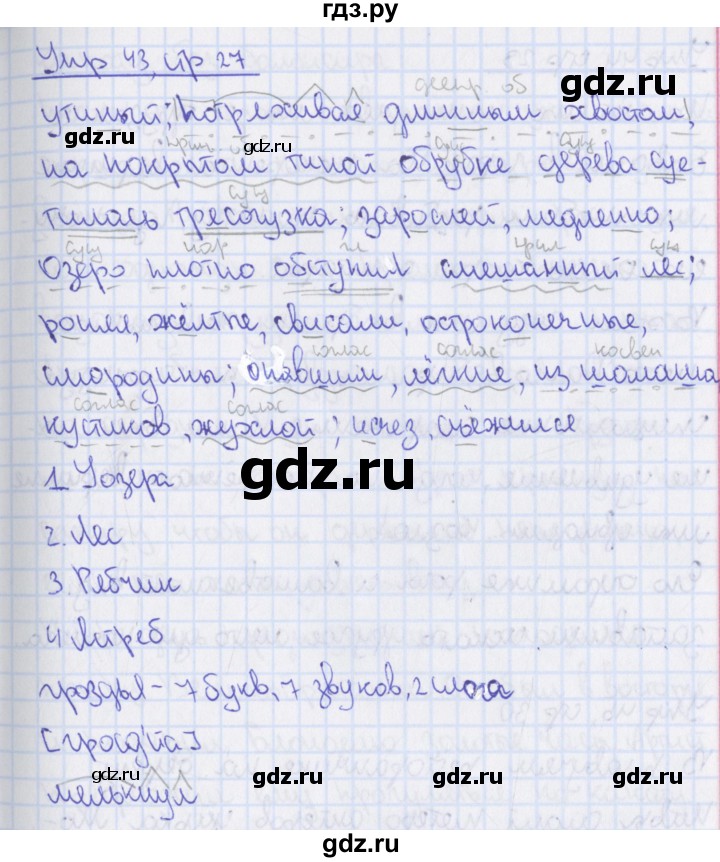 гдз.ру
Упр 43, стр 27
деепр. об
утиный; потряхивая длинным хвостом,
gdz.ru
gdz.ru
прич
сущ
на покрытом тиной обрубке дерева суе-
сущ
тилась трясогузка; зарослей, медленно;
сущ нар гл прил сущ
Озеро плотно обступил смешанный лес;
рощея, жёлтые, свисали, остроконечные,
соглас соглас косвен
смородины; опавшим, лёгкие, из шалаша
соглас соглас
кустиков, жухлой; исчез, съёжился
gdz.ru
1. У озера
2. Лес
3. Рябчик
4. Ястреб
гроздья - 7 букв, 7 звуков, 2 слога
[грозд'йа]
gdz.ru
gdz.ru
gdz.ru
мелькнул
gdz.ru